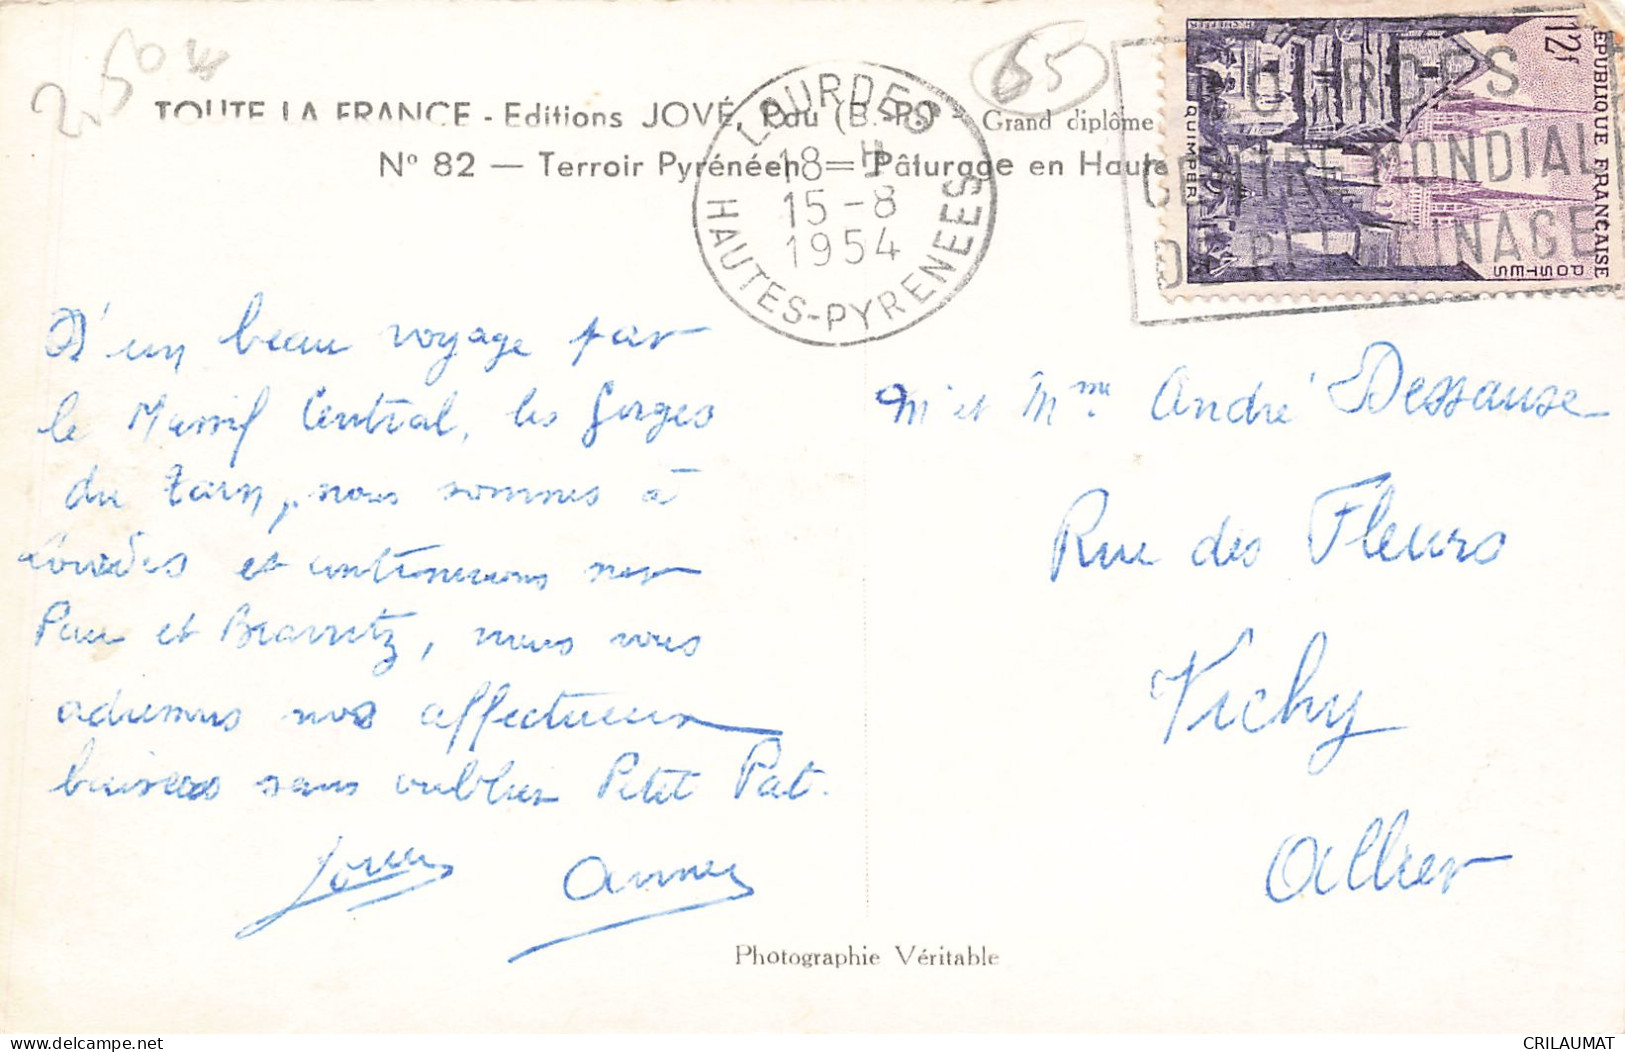 2,50
65
TOUTE LA FRANCE - Editions JOVÉ, Pau (B.-P.) Grand diplôme
N° 82 — Terroir Pyrénéen — Pâturage en Haute
LOURDES
18 = H
15 - 8
1954
HAUTES-PYRENEES
LOURDES
CENTRE MONDIAL
DE PELERINAGE
12f
REPUBLIQUE FRANÇAISE
POSTES
QUIMPER
D'un beau voyage par
le Massif Central, les Gorges
du Tarn, nous sommes à
Lourdes et continuerons sur
Pau et Biarritz, nous vous
adressons nos affectueux
baisers sans oublier Petit Pat.
M et Mme André Dessause
Rue des Fleurs
Vichy
Allier
Photographie Véritable
CRILAUMAT